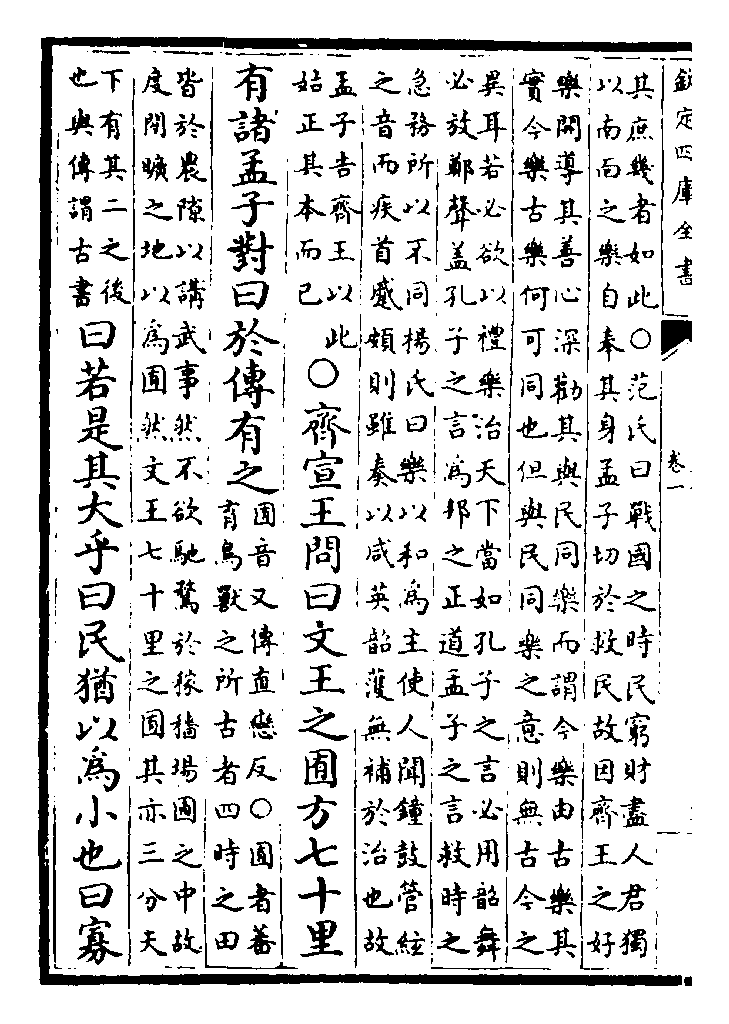 欽定四庫全書
卷一
其庶幾者如此○范氏曰戰國之時民窮財盡人君獨
以南面之樂自奉其身孟子切於救民故因齊王之好
樂開導其善心深勸其與民同樂而謂今樂由古樂其
實今樂古樂何可同也但與民同樂之意則無古今之
異耳若必欲以禮樂治天下當如孔子之言必用韶舞
必放鄭聲蓋孔子之言為邦之正道孟子之言救時之
急務所以不同楊氏曰樂以和為主使人聞鐘鼓管絃
之音而疾首蹙頞則雖奏以咸英韶濩無補於治也故
孟子告齊王以此
姑正其本而已
○齊宣王問曰文王之囿方七十里
有諸孟子對曰於傳有之
囿音又傳直戀反○囿者蕃
育鳥獸之所古者四時之田
皆於農隙以講武事然不欲馳騖於稼穡場圃之中故
度閒曠之地以為囿然文王七十里之囿其亦三分天
下有其二之後
也與傳謂古書
曰若是其大乎曰民猶以為小也曰寡